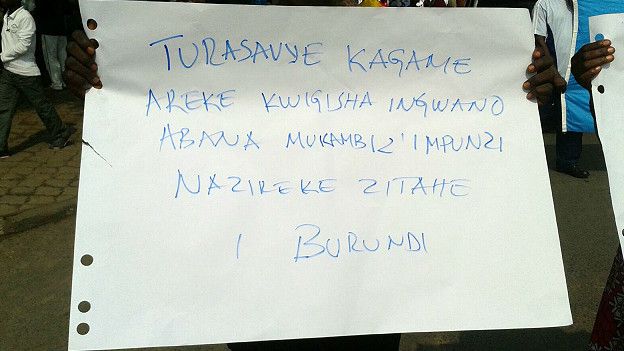 TURASAVYE KAGAME
AREKE KWIGISHA INGWANO
ABANA MUKAMBIZ'IMPUNZI
NAZIREKE ZITAHE
I BURUNDI